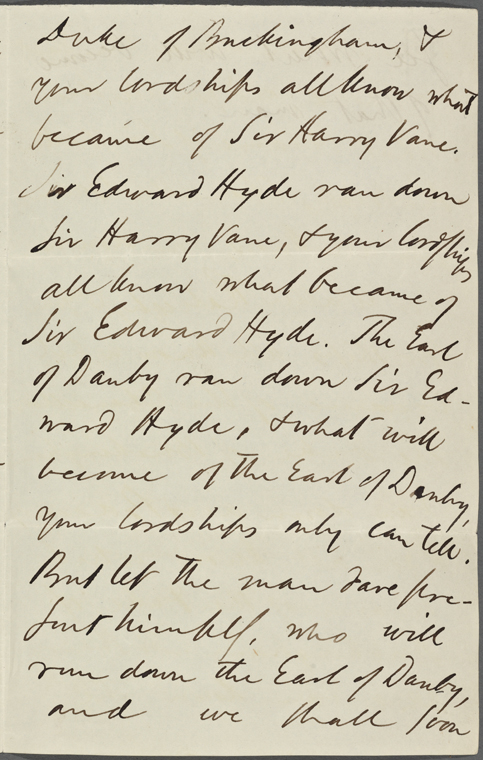 Duke of Buckingham, &
your lordships all know what
became of Sir Harry Vane.
Sir Edward Hyde ran down
Sir Harry Vane, & your lordships
all know what became of
Sir Edward Hyde. The Earl
of Danby ran down Sir Ed-
ward Hyde, & what will
become of the Earl of Danby,
your lordships only can tell.
But let the man dare pre-
sent himself, who will
run down the Earl of Danby,
and we shall soon